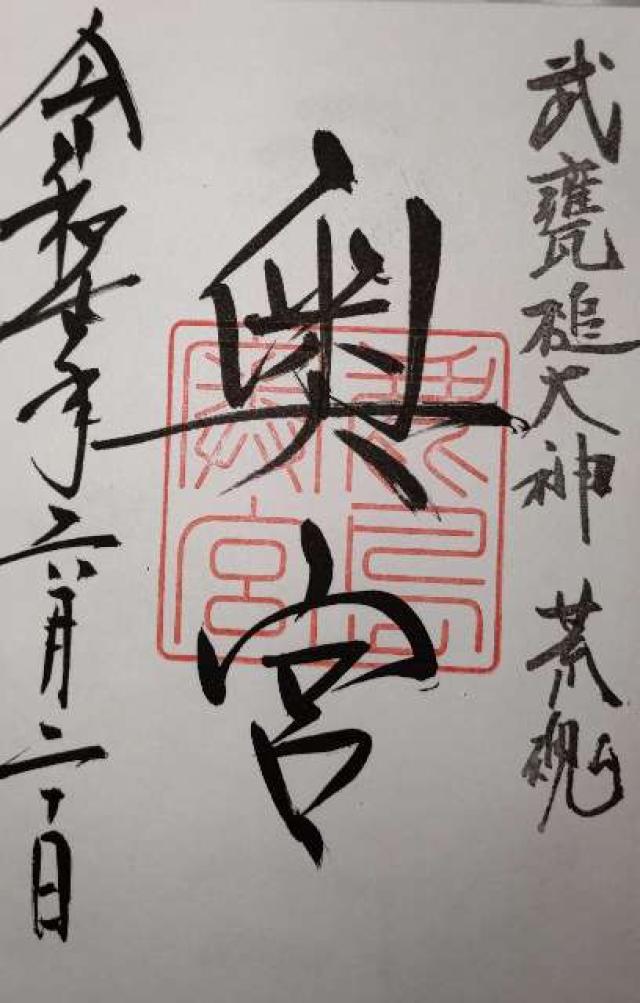 武甕槌大神 荒魂
奥宮
令和七年六月二十日